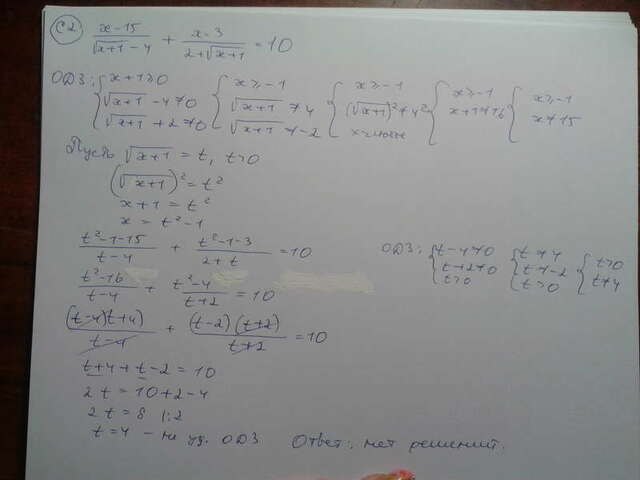 C2. (x-15)/(√(x+1) -4) + (x-3)/(2+√(x+1)) = 10
ОДЗ: { x+1≥0 { x≥-1 { x≥-1 { x≥-1 { x≥-1
√(x+1) -4≠0 √(x+1) ≠4 (√(x+1))²≠4² x+1≠16 x≠15
√(x+1) +2≠0 √(x+1) ≠-2
Пусть √(x+1) = t, t>0
(√(x+1))² = t²
x+1 = t²
x = t²-1
(t²-1-15)/(t-4) + (t²-1-3)/(2+t) = 10
ОДЗ: { t-4≠0 { t≠4 { t>0
t+2≠0 t≠-2 t≠4
t>0 t>0
(t²-16)/(t-4) + (t²-4)/(t+2) = 10
(t-4)(t+4)/(t-4) + (t-2)(t+2)/(t+2) = 10
t+4+t-2 = 10
2t = 10+2-4
2t = 8 |:2
t=4 - не уд. ОДЗ Ответ: нет решений.